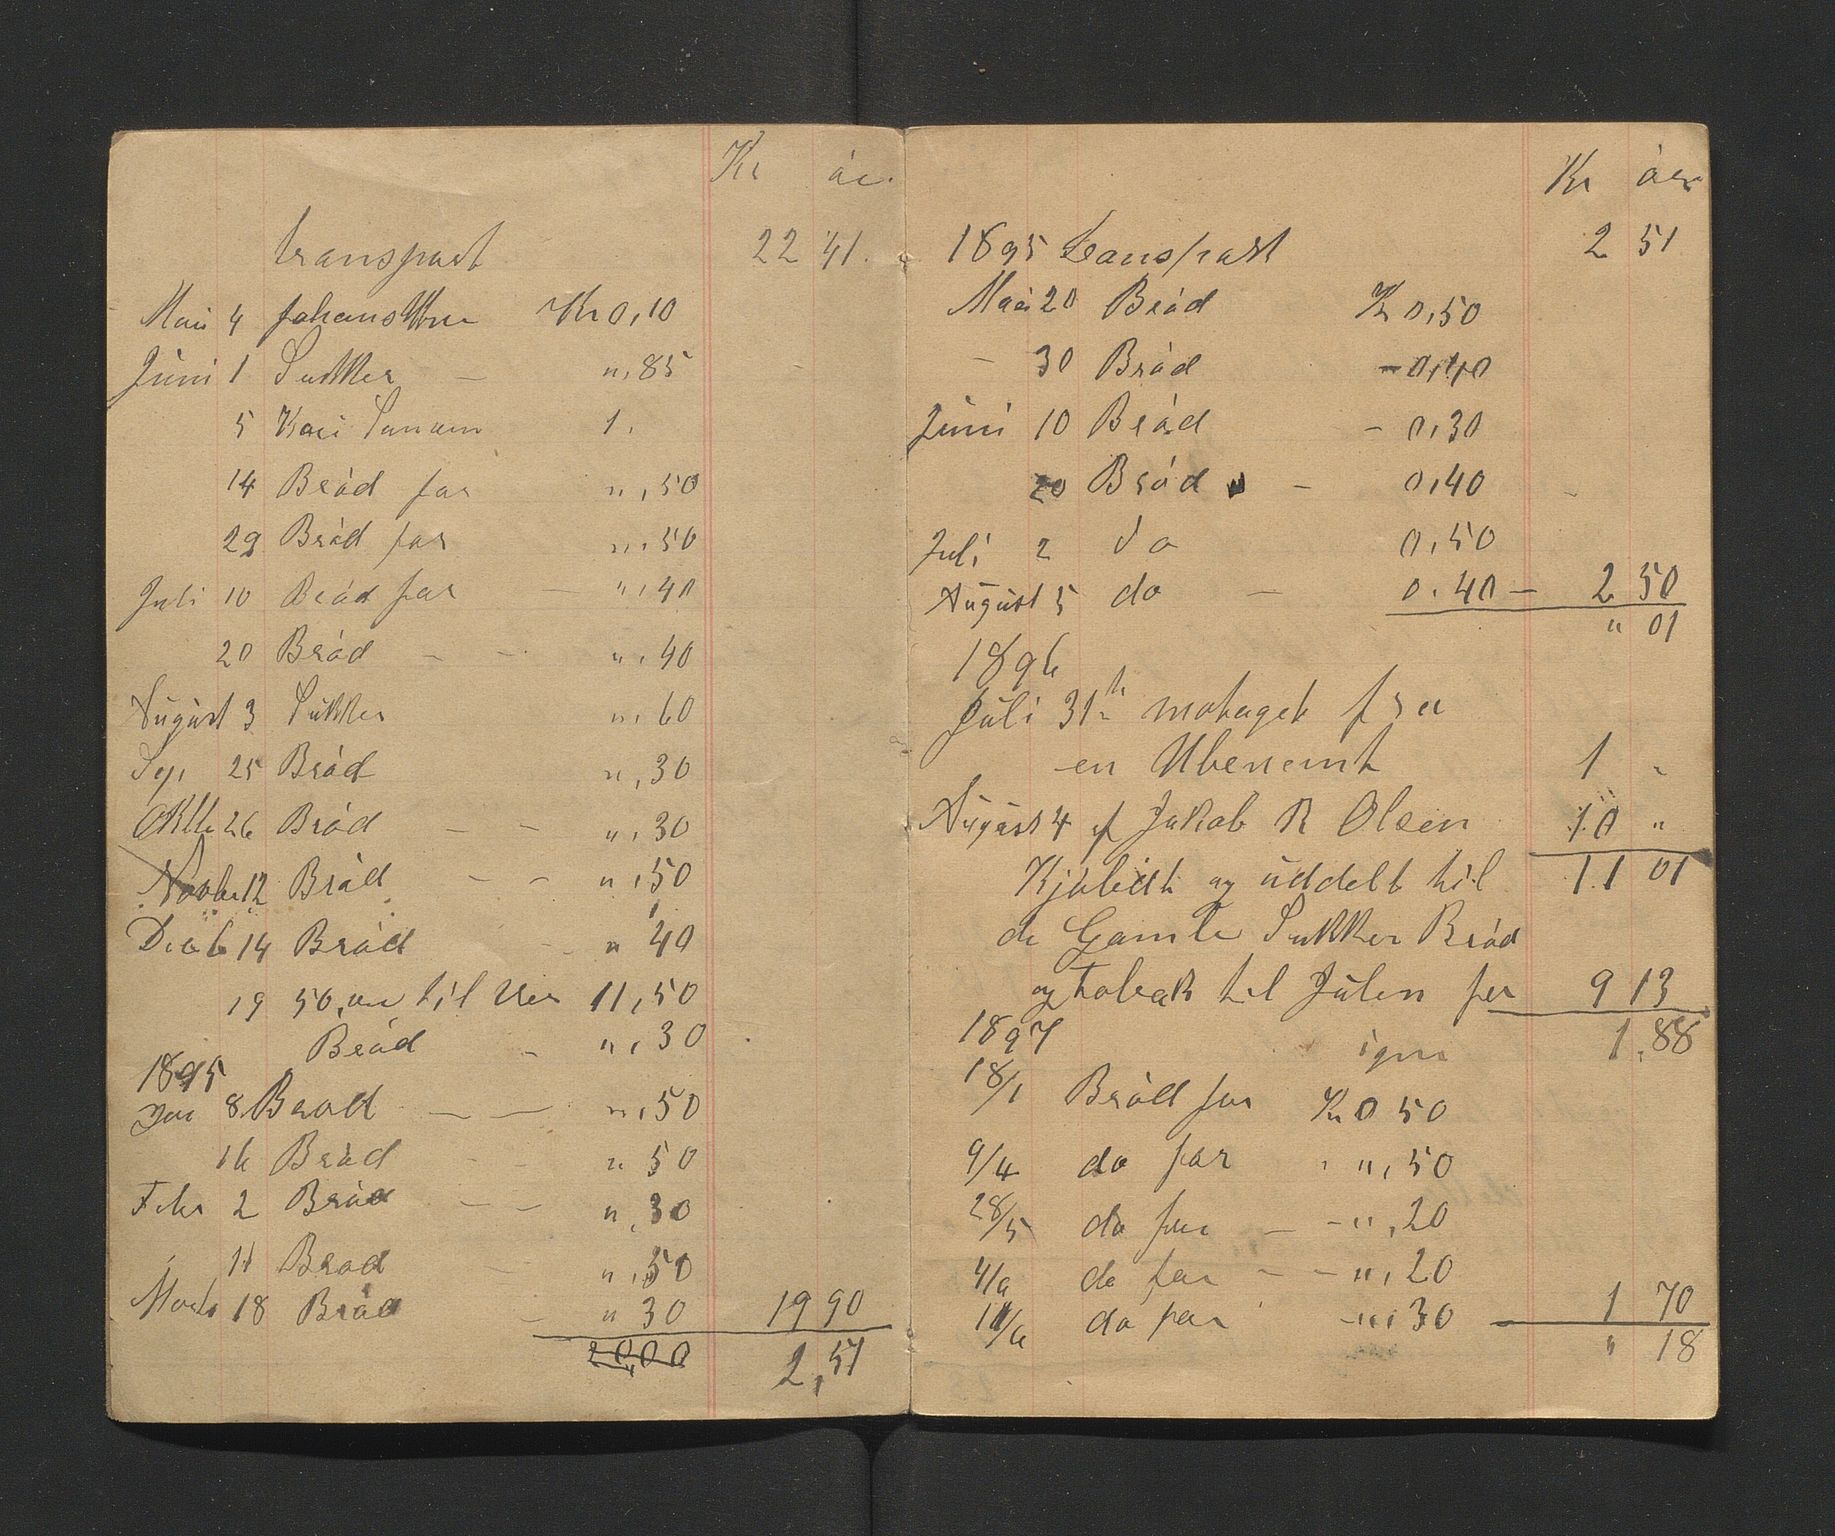 Kr ör.
transport 22 41.
Mai 4 Kr 0,10
Juni 1 Sukker — ",85
5 Kari 1.
14 Bröd for ",50
29 Bröd for ",50
Juli 10 Bröd for — ",40
20 Bröd — — ",40
August 3 Sukker ",60
Sep 25 Bröd ",30
Oktb 26 Bröd — — ",30
Novbr 12 Bröd — — ",50
Decb 14 Bröd - " 40
19 50, til Ved 11,50
Bröd - ",30
1895
Jan 8 Bröd — — ",50
16 Bröd - - " 50
Febr 2 Bröd — — ",30
11 Bröd - ",50
Marts 18 Bröd - " 30 19 90
20,00 2,51
Kr ör
1895 transport 2 51
Mai 20 Bröd Kr 0,50
— 30 Bröd - 0,40
Juni 10 Bröd - 0,30
20 Bröd — 0,40
Juli 2 do 0,50
August 5 do — 0,40 — 2 50
" 01
1896
Juli 31te motaget fra
en Ubenemt 1 "
August 4 af Jakob R Olsen 10 "
Kjöbdt og uddelt til 11 01
de Gamle Sukker Bröd
og Tobak til Julen for 9 13
1897 igen 1.88
18/1 Bröd for Kr 0 50
9/4 do for ",50
28/5 do for — - ",20
4/9 do for - - ",20
do for - ",30 — 1 70
" 18